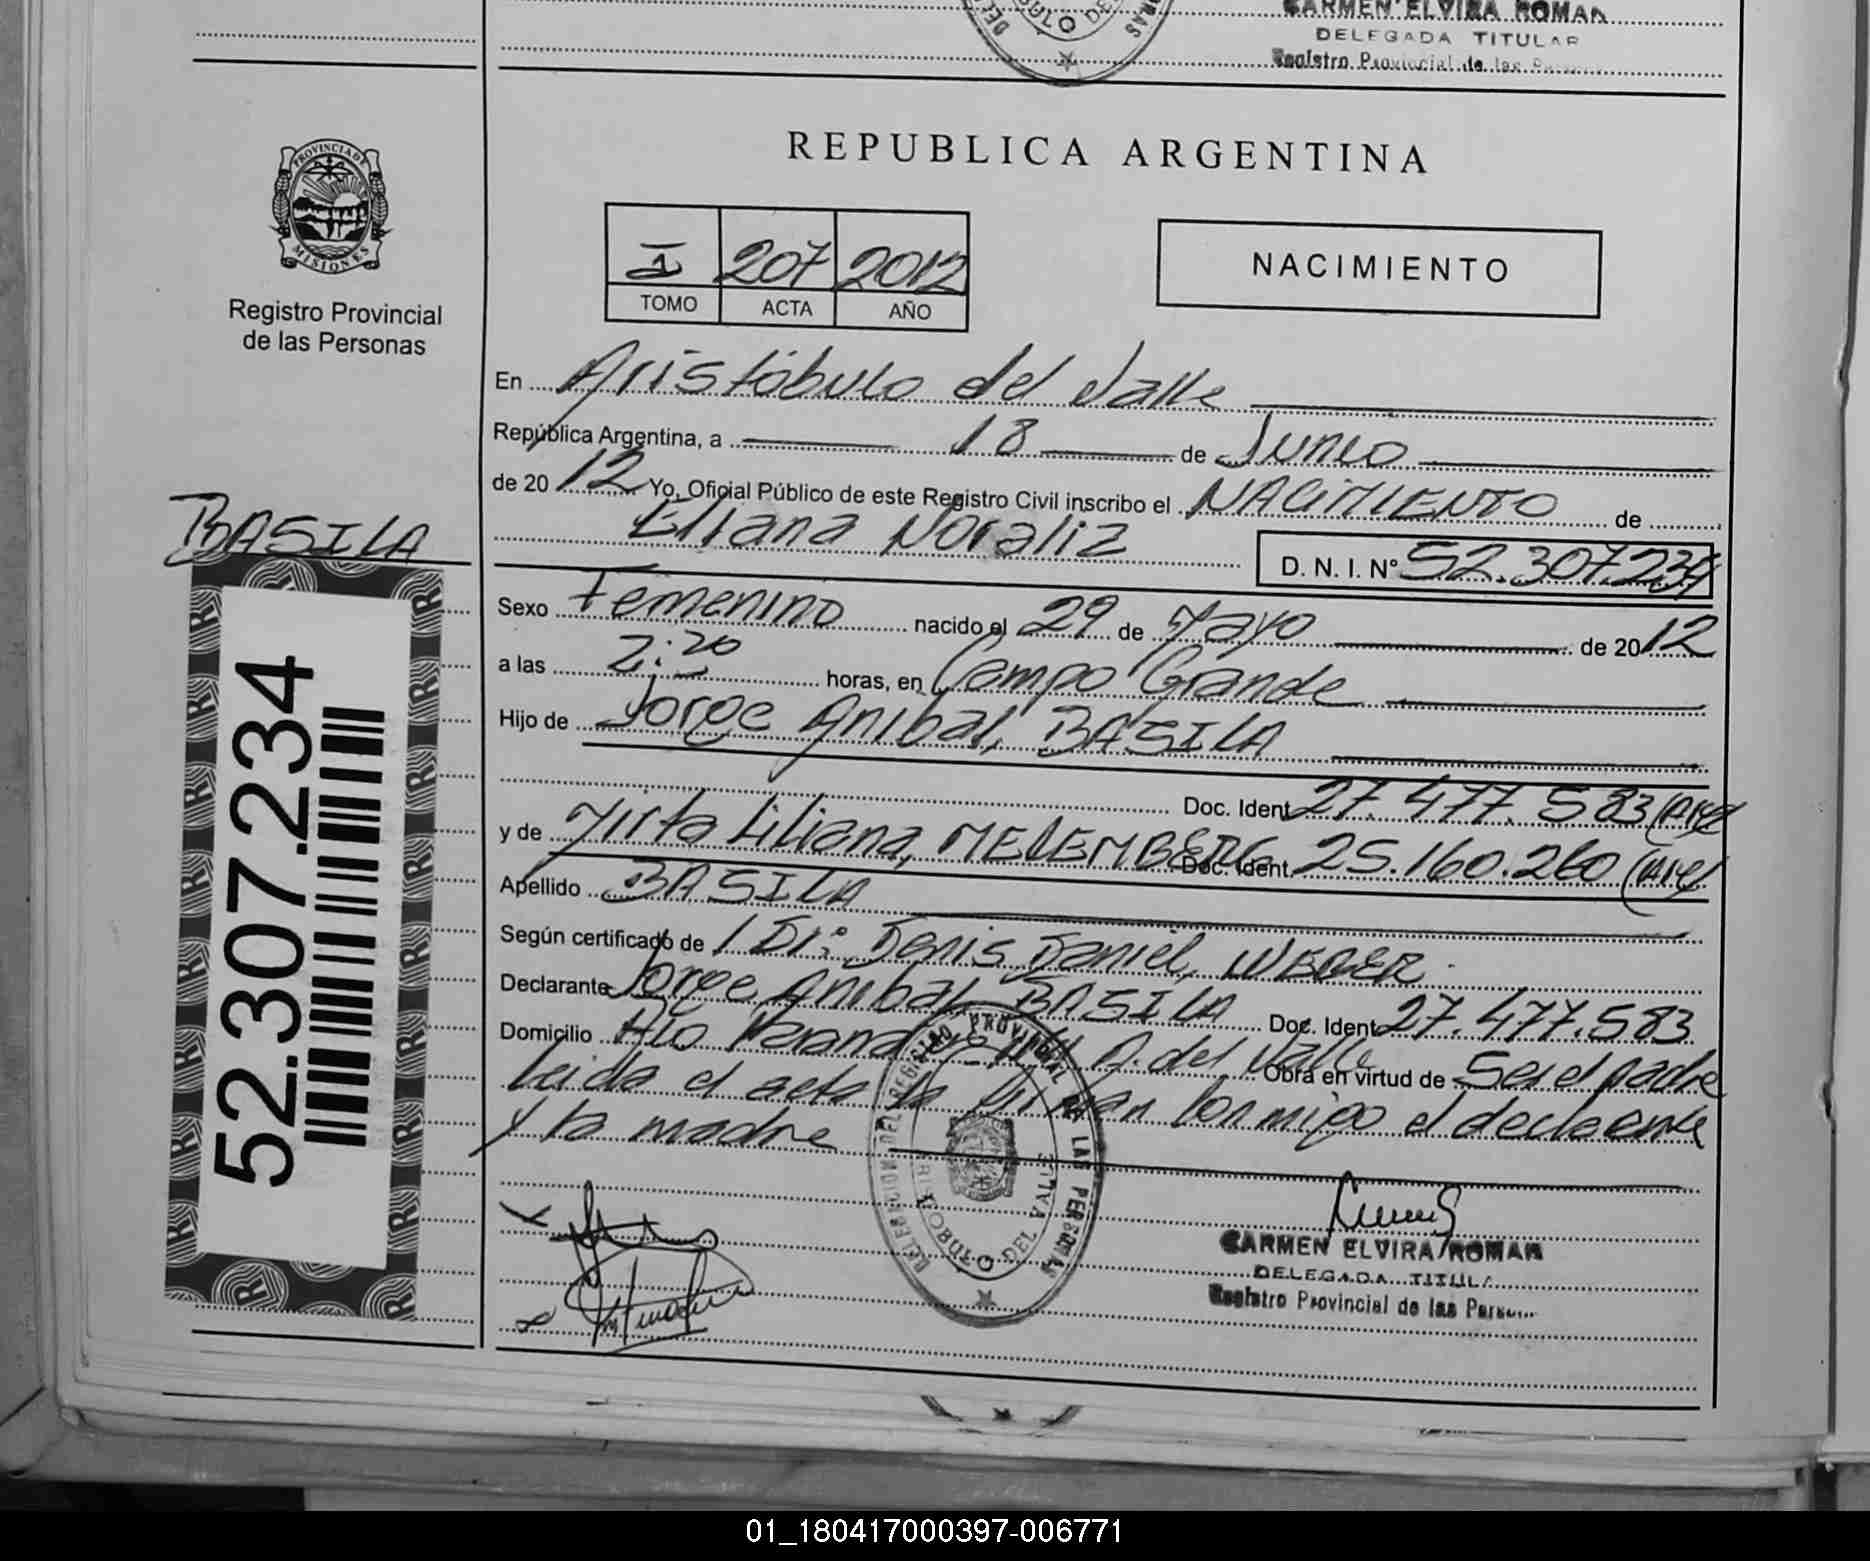 CARMEN ELVIRA ROMAN
DELEGADA TITULAR
Registro Provincial de las
PROVINCIA DE
MISIONES
Registro Provincial
de las Personas
REPUBLICA ARGENTINA
I 207 2012
TOMO ACTA AÑO
NACIMIENTO
En Aristóbulo del Valle
República Argentina, a 18 de Junio
de 2012 Yo, Oficial Público de este Registro Civil inscribo el NACIMIENTO de
Eliana Noraliz D. N. I. Nº 52.307.234
BASILA
52.307.234
Sexo Femenino nacido el 29 de Mayo de 2012
a las 2:20 horas, en Campo Grande
Hijo de Jorge Anibal, BASILA
Doc. Ident. 27.477.583 (Arg)
y de Mirta Liliana, MELEMBERG Doc. Ident. 25.160.260 (Arg)
Apellido BASILA
Según certificado de / Dr: Denis Daniel, WEBER.
Declarante Jorge Anibal, BASILA Doc. Ident. 27.477.583
Domicilio Alto A. del Valle Obra en virtud de Ser el padre
Leida el acta la firman conmigo el declarante
y la madre
REGISTRO PROVINCIAL DE LAS PERSONAS
ARISTOBULO DEL VALLE
CARMEN ELVIRA ROMAN
DELEGADA TITULA
Registro Provincial de las Person
01_180417000397-006771